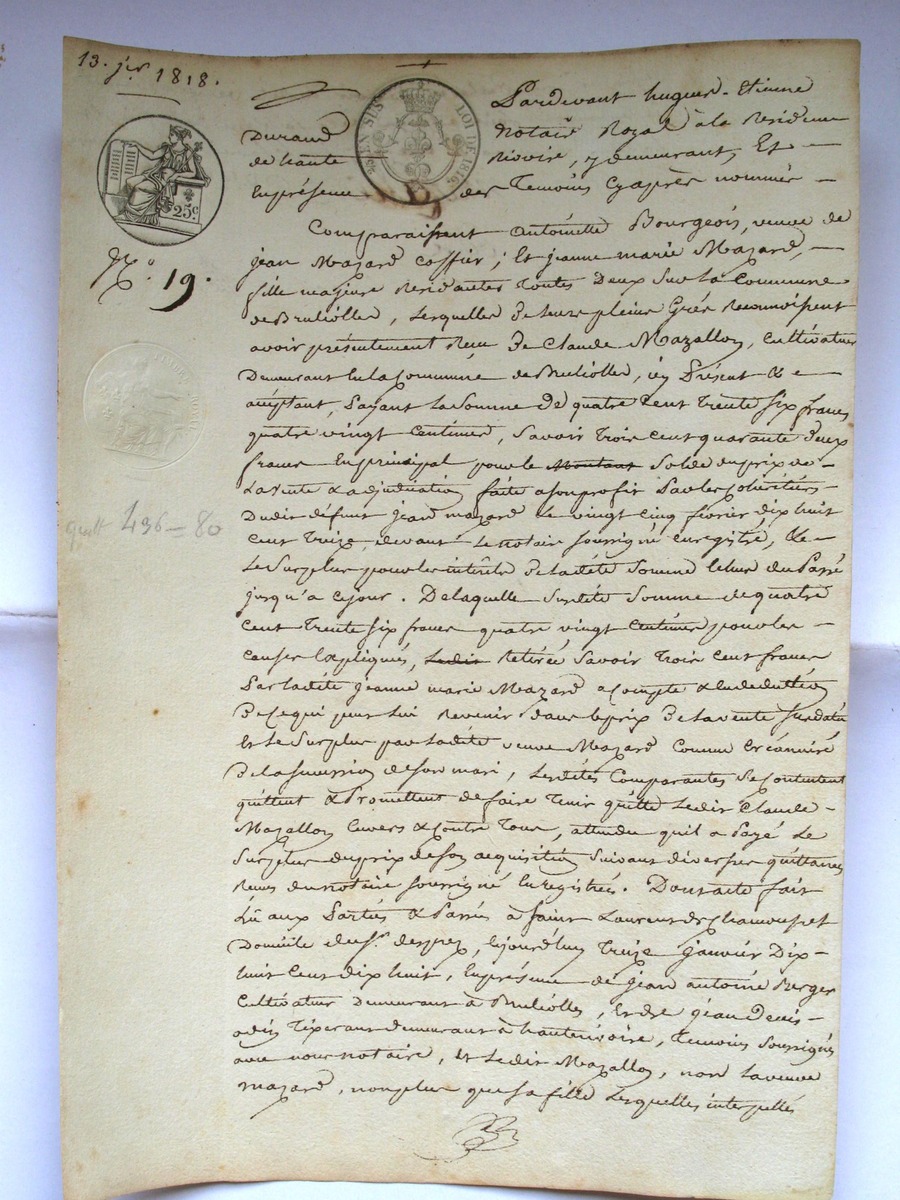 13. jer 1818.
Pardevant hugues-Etienne
EN SUS
LOI DE 1816.
Durand notaire Royal à la Residence
de haute Rivoire, y demeurant, Et
En présence des Temoins Cyaprès nommés
25c
Comparaissent antoinette Bourgeois, veuve de
jean Mazard coffier ; Et jeanne marie Mazard,
No. 19.
fille majeure Residantes Toutes Deux sur la Commune
de Brullioles, Lesquelles De leurs pleins Grés Reconnoissent
avoir présentement Reçu De Claude Mazallon, Cultivateur
Demeurant En la Commune de Brullioles, icy Présent & e
acceptant, payant La Somme De quatre Cent Trente six francs
quatre vingt Centimes, Savoir Trois cent quarante deux
francs En principal pour le Montant Solde du prix de
La vente & adjudication faite a son profit Par les cohéritiers
Dudit défunt Jean mazard Le vingt cinq février dix huit
quitt 436=80
Cent Treize, devant Le notaire soussigné enregistré, &
Le Surplus pour les intérêts De ladite Somme du Passé
jusqu'a ce jour. De laquelle Susdite Somme de quatre
Cent Trente six francs quatre vingt Centimes pour les
causes Expliqués, Ledit Retirée Savoir Trois cent francs
Par ladite jeanne marie Mazard a compte & en deduction
De ce qui peut lui Revenir dans le prix De la vente susdatée
Et le Surplus par Ladite veuve Mazard Comme Créancière
De la succession de son mari, Lesdites Comparantes Se Contentent
quittent & Promettent de faire Tenir quitte Ledit Claude
Mazallon Envers & Contre Tous, attendu qu'il a Payé Le
Surplus du prix de son acquisition Suivant diverses quittances
Reçues du notaire soussigné Enregistrées. Dont acte fait
Lû aux Parties & Passés à Saint Laurent de Chamousset
Domicile du Sr. despres, Ce jourd'huy Treize janvier Dix
huit Cent dix huit, En présence de jean antoine Berger
Cultivateur Demeurant à Brullioles, Et de jean Denis
Tixerant demeurant à hauterivoire, Temoins Soussignés
avec nous notaire, Et Ledit Mazallon, non La veuve
mazard, non plus que sa fille Lesquelles interpellés